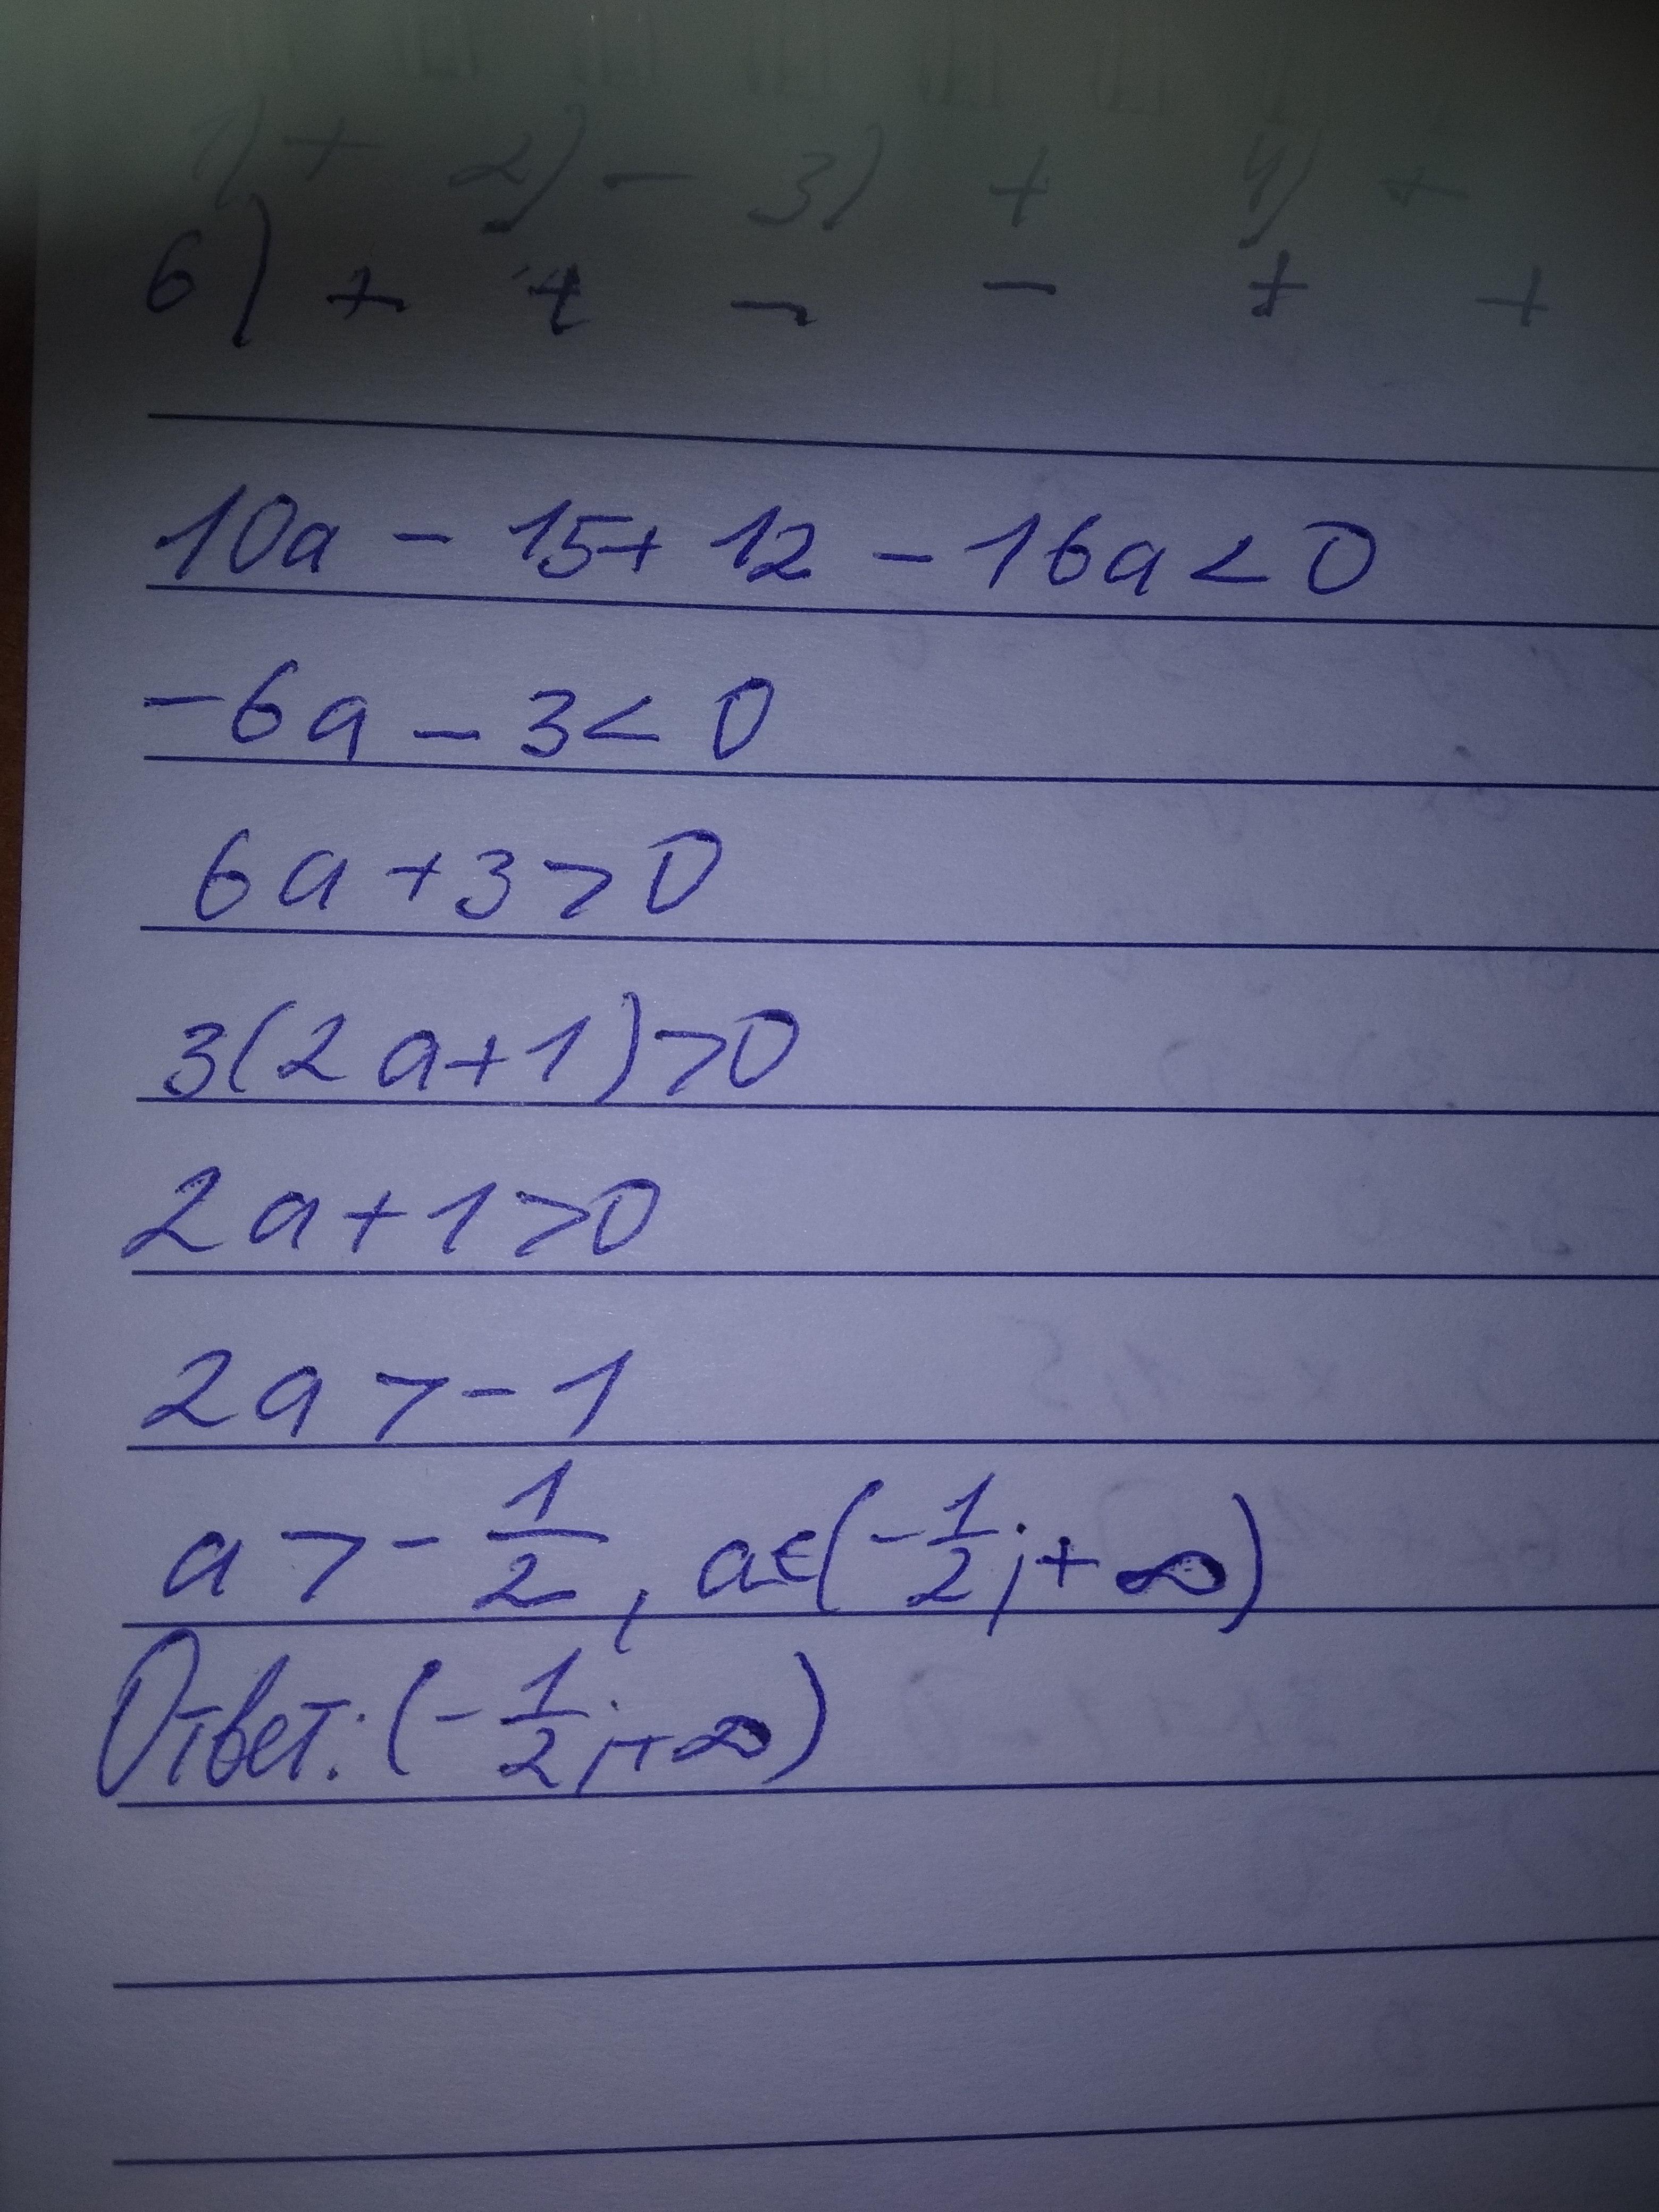 1) + 2) - 3) + 4) +
6) + + - - + +
10a - 15 + 12 - 16a < 0
-6a - 3 < 0
6a + 3 > 0
3(2a+1) > 0
2a + 1 > 0
2a > -1
a > -1/2, a∈(-1/2; +∞)
Ответ: (-1/2; +∞)